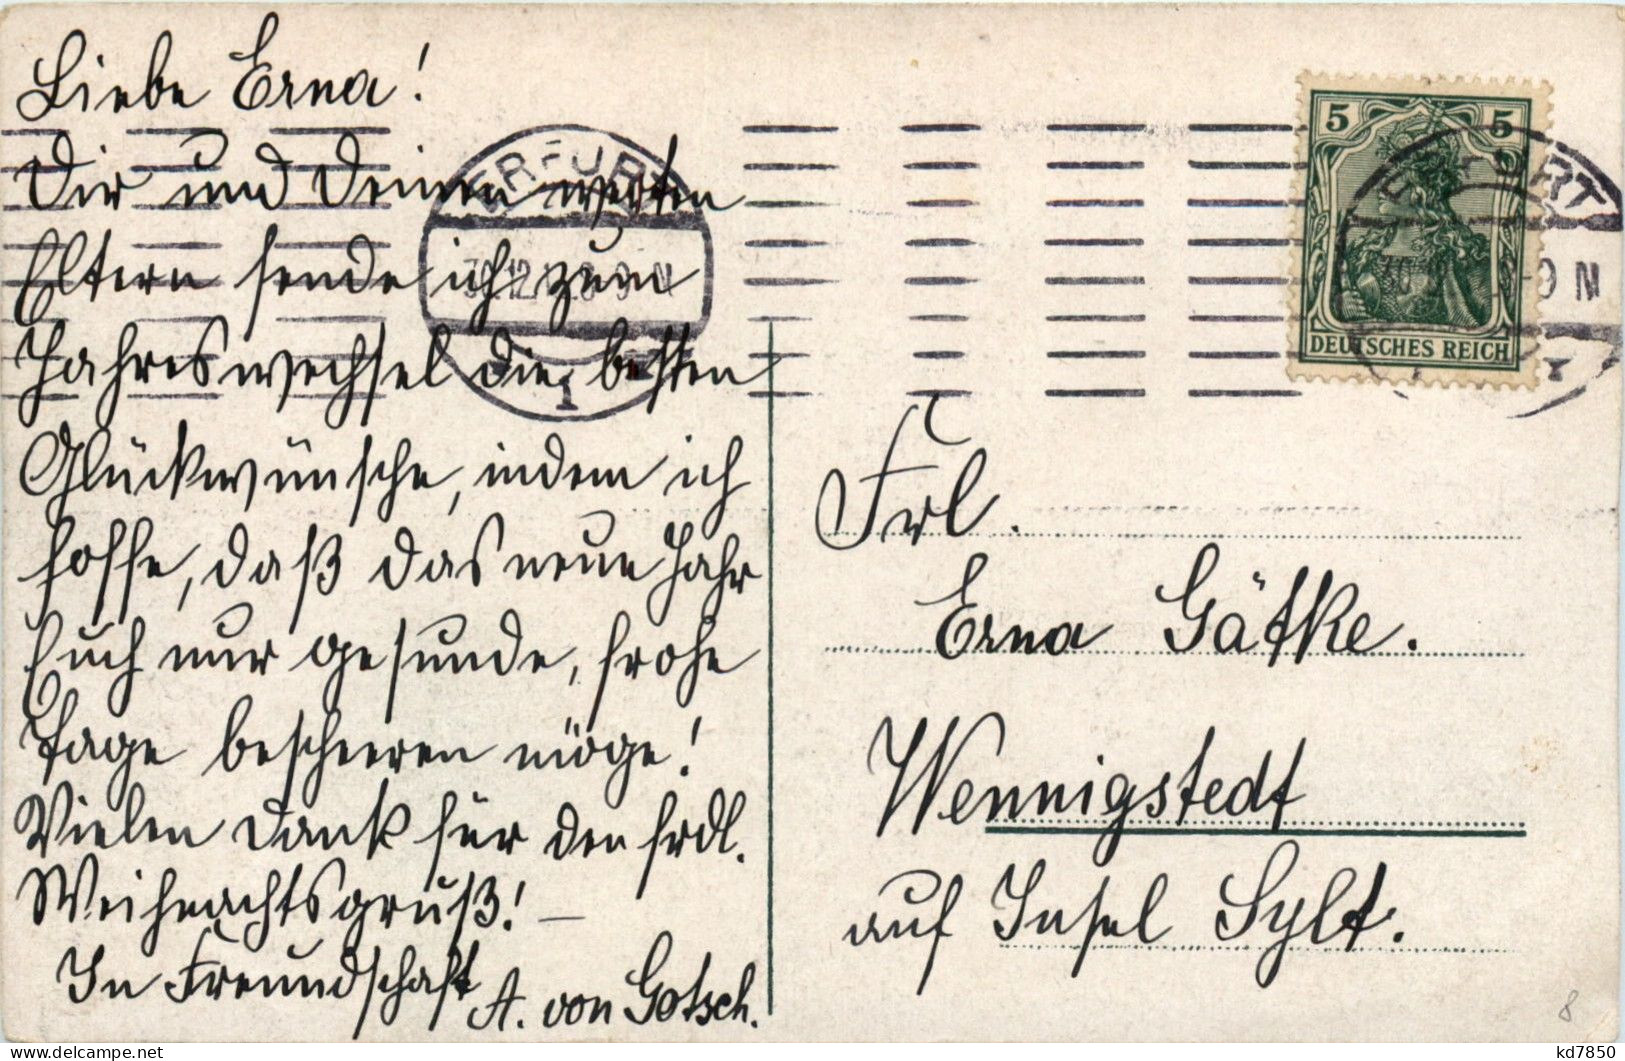 Liebe Erna!
Dir und Deinen werten
Eltern sende ich zum
Jahreswechsel die besten
Glückwünsche, indem ich
hoffe, daß das neue Jahr
Euch nur gesunde, frohe
Tage bescheeren möge!
Vielen Dank für den frdl.
Weihnachtsgruß! —
In Freundschaft
A. von Gotsch.
ERFURT
1
5 5
DEUTSCHES REICH
Frl.
Erna Gätke.
Wennigstedt
auf Insel Sylt.
8
kd7850